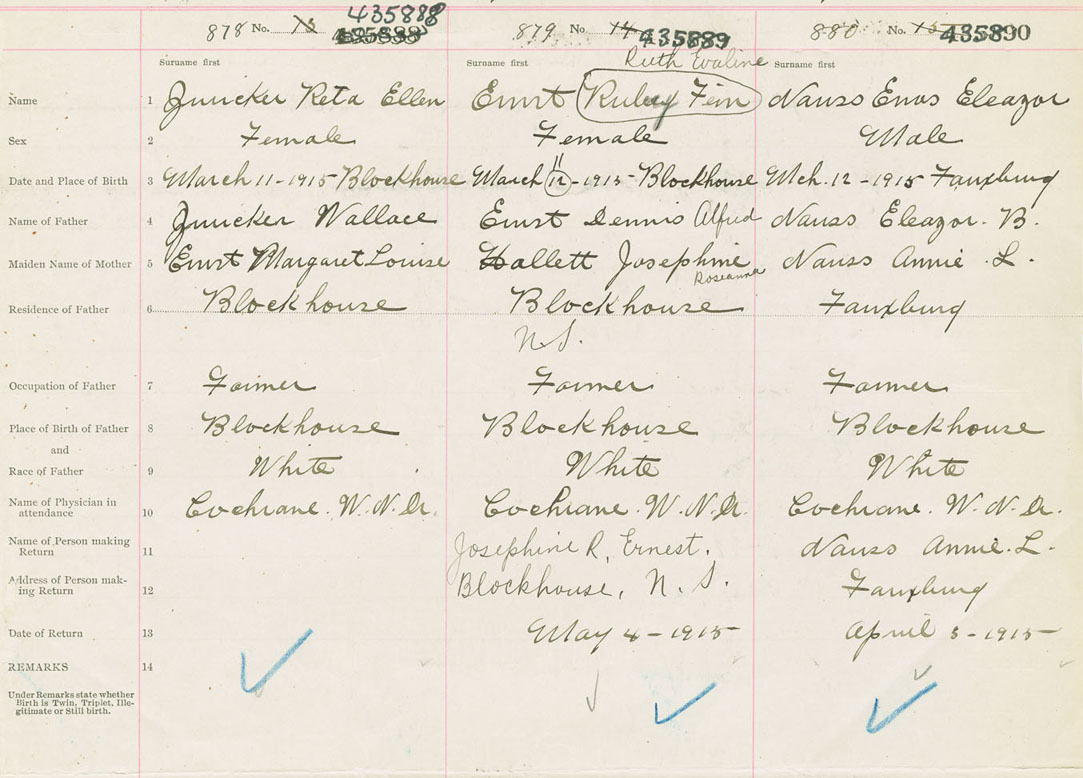 435888
878 No. 13 879 No 14 435889 880 No. 15 435890
Ruth Evaline
Surname first Surname first Surname first
Name 1 Juicker Reta Ellen Ernst Ruby Fern Nauss Enos Eleazor
Sex 2 Female Female Male
11
Date and Place of Birth 3 March 11-1915 Blockhouse March 12-1915 Blockhouse Mch. 12-1915 Fauxburg
Name of Father 4 Juicker Wallace Ernst Dennis Alfred Nauss Eleazor. B.
Maiden Name of Mother 5 Ernst Margaret Louise Hallett Josephine Nauss Annie L.
Roseanna
Residence of Father 6 Blockhouse Blockhouse Fauxburg
N.S.
Occupation of Father 7 Farmer Farmer Farmer
Place of Birth of Father 8 Blockhouse Blockhouse Blockhouse
and
Race of Father 9 White White White
Name of Physician in
attendance 10 Cochrane. W.N.Dr. Cochrane. W.N.Dr. Cochrane. W.N.Dr.
Name of Person making
Return 11 Josephine R. Ernest. Nauss Annie. L.
Address of Person mak-
ing Return 12 Blockhouse, N.S. Fauxburg
Date of Return 13 May 4-1915 April 3-1915
REMARKS 14
Under Remarks state whether
Birth is Twin, Triplet, Ille-
gitimate or Still birth.